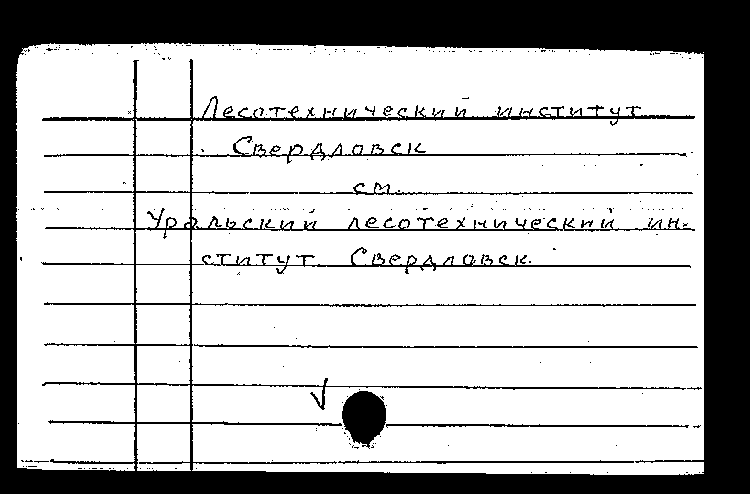 Лесотехнический институт
Свердловск
см.
Уральский лесотехнический ин-
ститут Свердловск.